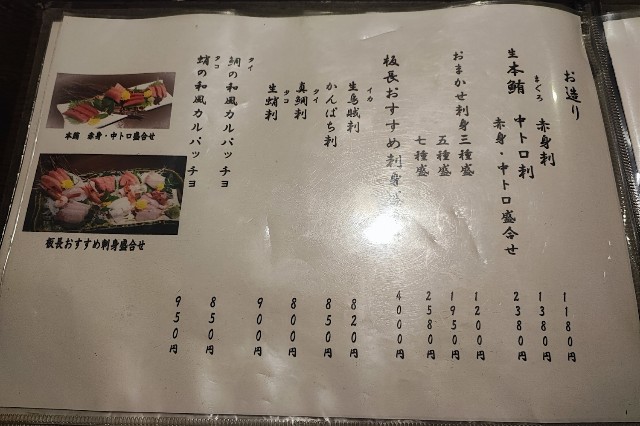 お造り
生本鮪 赤身刺 1180円
まぐろ
中トロ刺 1380円
赤身・中トロ盛合せ 2380円
おまかせ刺身三種盛 1200円
五種盛 1950円
七種盛 2580円
板長おすすめ刺身盛 4000円
イカ
生烏賊刺 820円
かんぱち刺 850円
タイ
真鯛刺 800円
タコ
生蛸刺 900円
タイ
鯛の和風カルパッチョ 850円
タコ
蛸の和風カルパッチョ 950円
本鮪 赤身・中トロ盛合せ
板長おすすめ刺身盛合せ